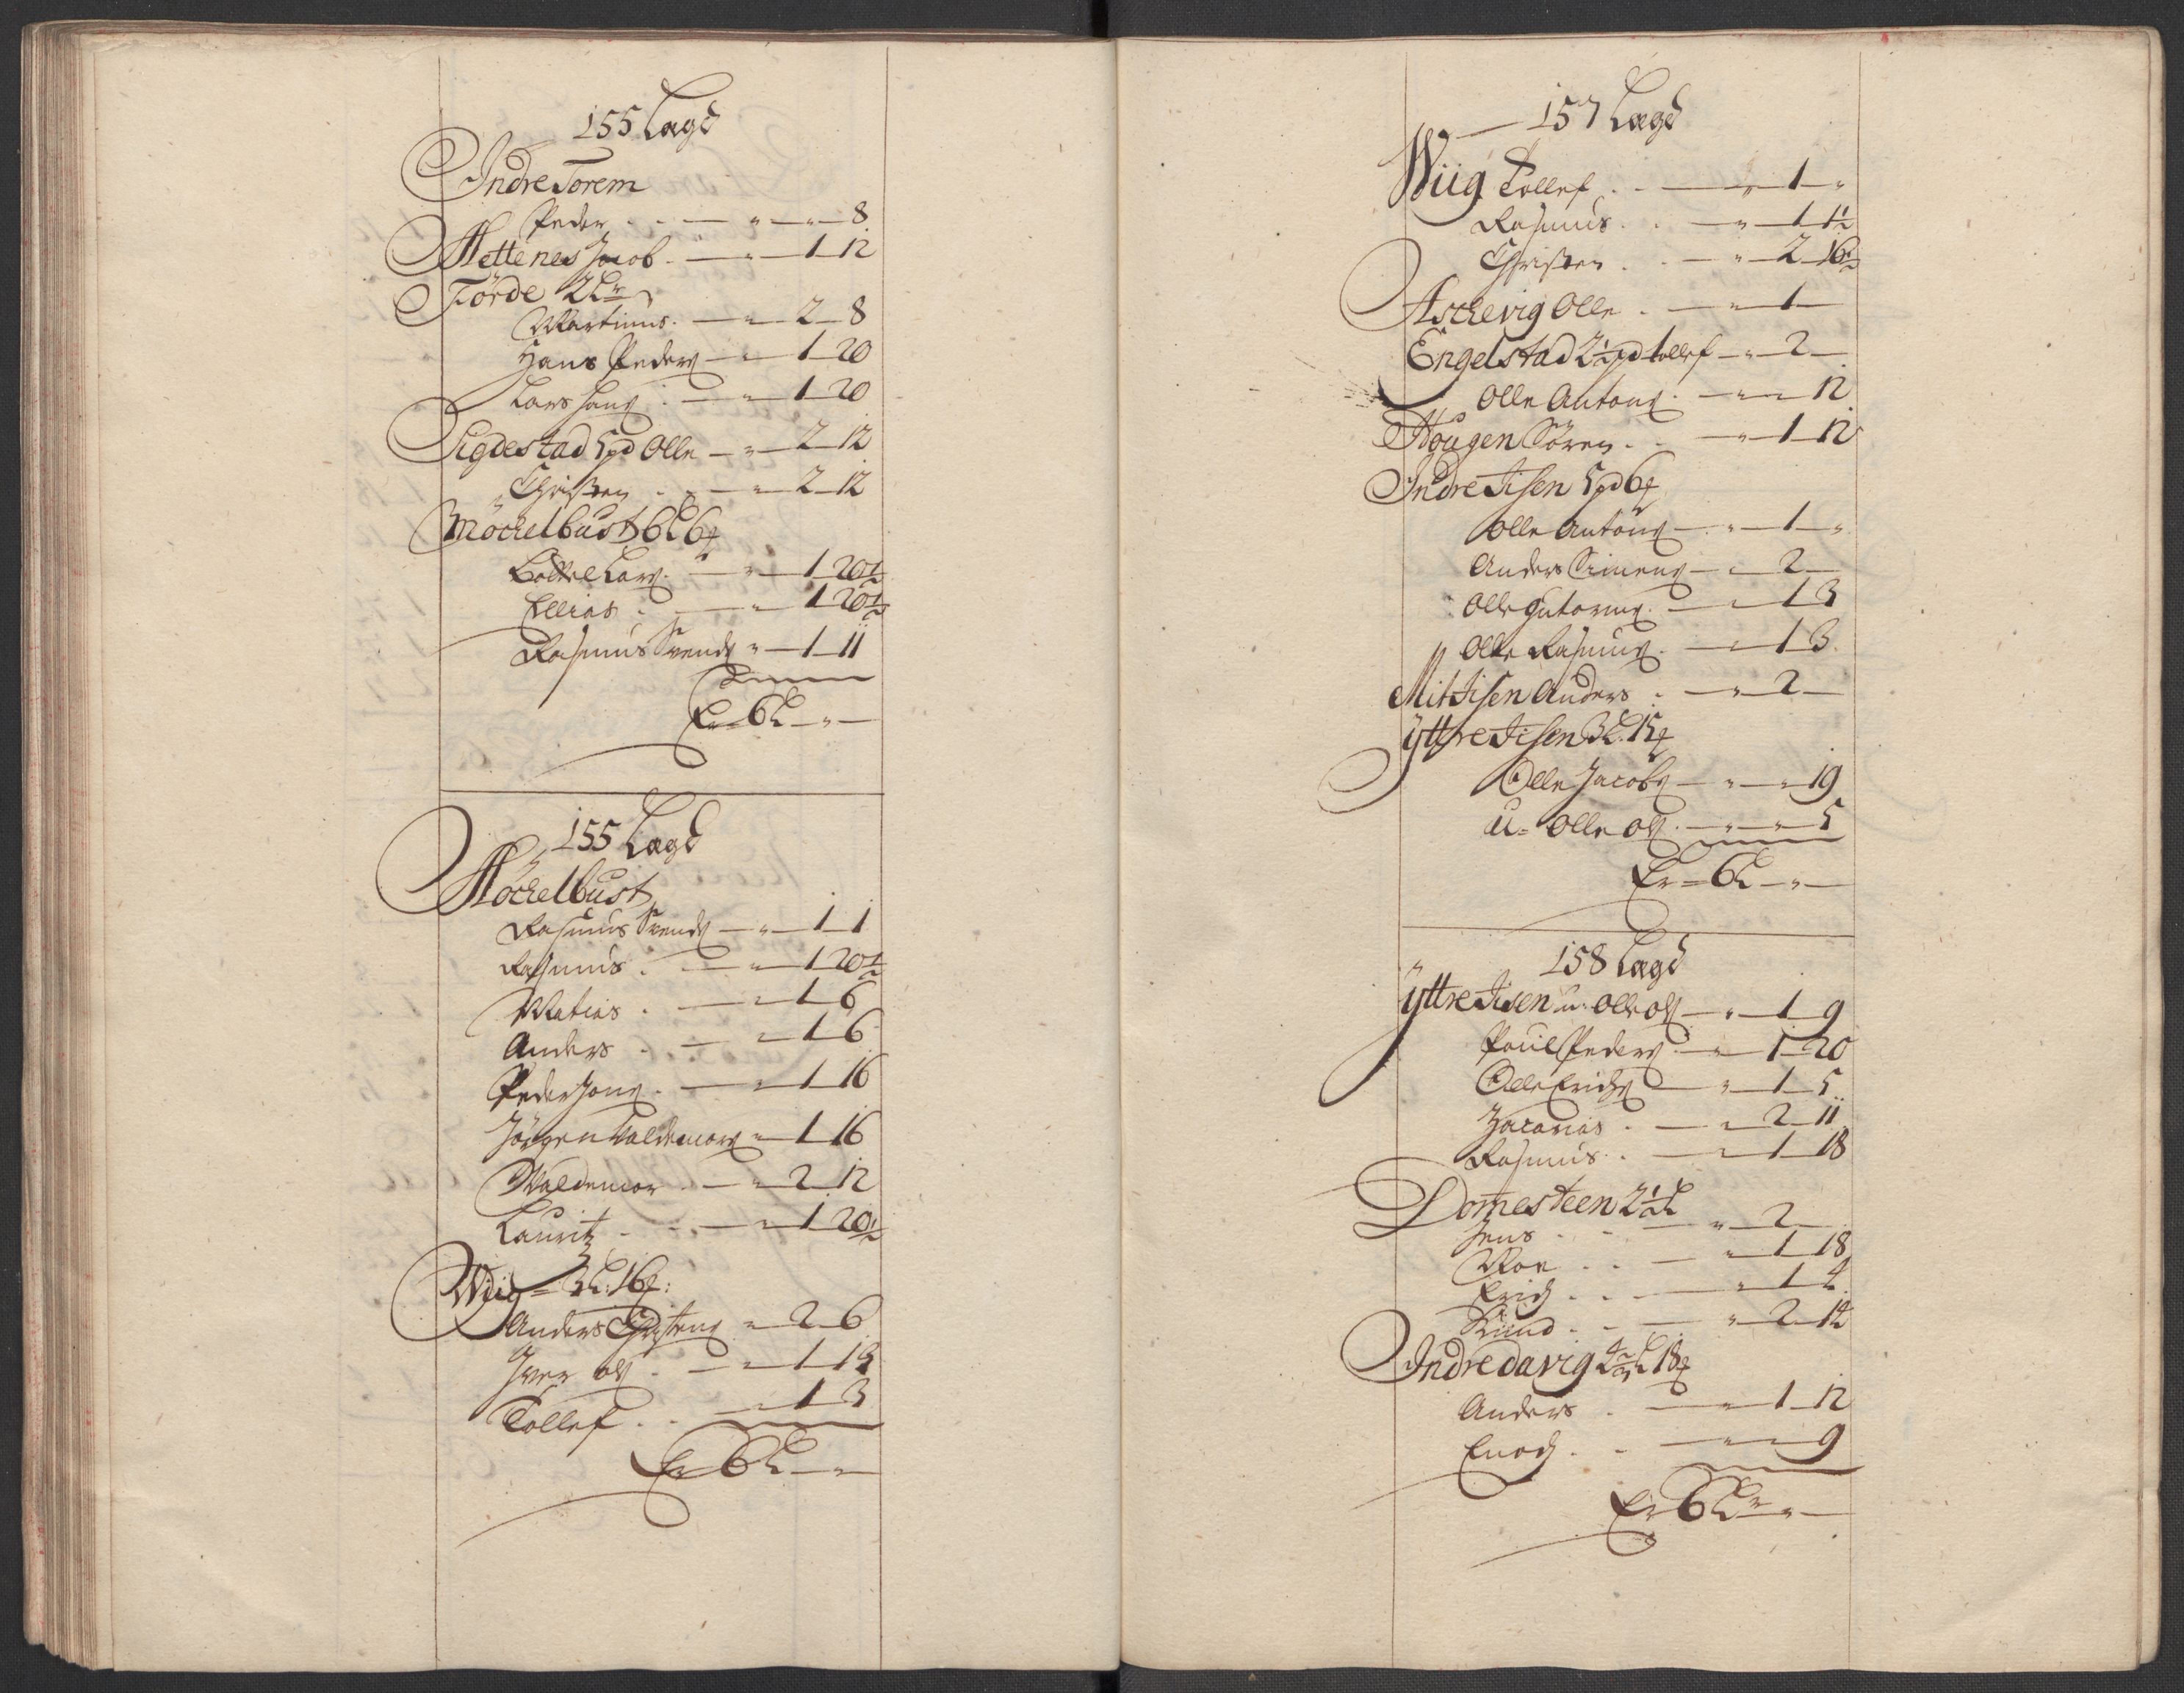 155 Lægd
Indre Torem
Peder . . — " — " — 8
Nettenes Jacob . — " — 1 12
Förde 2 L
Martinus . — " — 2 — 8
Hans Peders — " — 1 20
Lars Hans . — " — 1 20
Sigdestad 5 pd Olle — " — 2 12
Christen . . — " — 2 12
Möckelbust 6 L 6
Lars . — " — 1 20½
Ellias . — " — 1 20½
Rasmus Svends " — 1 11
Er 6 L — " —
155 Lægd
Möckelbust
Rasmus Svends — " — 1 1
Rasmus . — " — 1 20½
Matias . — " — 1 6
Anders . — " — 1 6
Peder Jons . — " — 1 16
Jörgen Valdemars " — 1 16
Waldemar . — " — 2 12
Lauritz . . — " — 1 20½
Wiig = 3 L : 16 :
Anders Christens " — 2 6
Iver Ols . — " — 1 13
Tollef . . — " — 1 3
Er 6 L — " —
— 157 Lægd
Wiig Tollef . . — " — 1 "
Rasmus . . — " — 1 1½
Christen . . — " — 2 16½
Aschevig Olle . — " — 1 —
Engelstad 2½ pd Tollef — " — 2 —
Olle Antons . — " — " 12
Hougen Sören . . — " — 1 12
Indre Tisen 5 pd 6
Olle Antons — " — 1 "
Anders Simens — " — 2 —
Olle Gutorms . — " — 1 3
Olle Rasmus . — " — 1 3
Mit Tisen Anders . — " — 2 —
Yttre Tisen 3 L 15
Olle Jacobs — " — " 19
u = Olle Ols . — " — " 5
Er = 6 L — " —
158 Lægd
Yttre Tisen u: Olle Ols — " — 1 9
Poul Peders . — " — 1 20
Olle Erichs — " — 1 5
Zacarias . — " — 2 11
Rasmus . . — " — 1 18
Domesteen 2½ L
Jens . . — " — 2 —
Roe . . — " — 1 18
Erich . . — " — 1 4
Knud . . — " — 2 14
Indre Davig L 18
Anders . — " — 1 12
Enoch . . — " — " 9
Er 6 L — " —